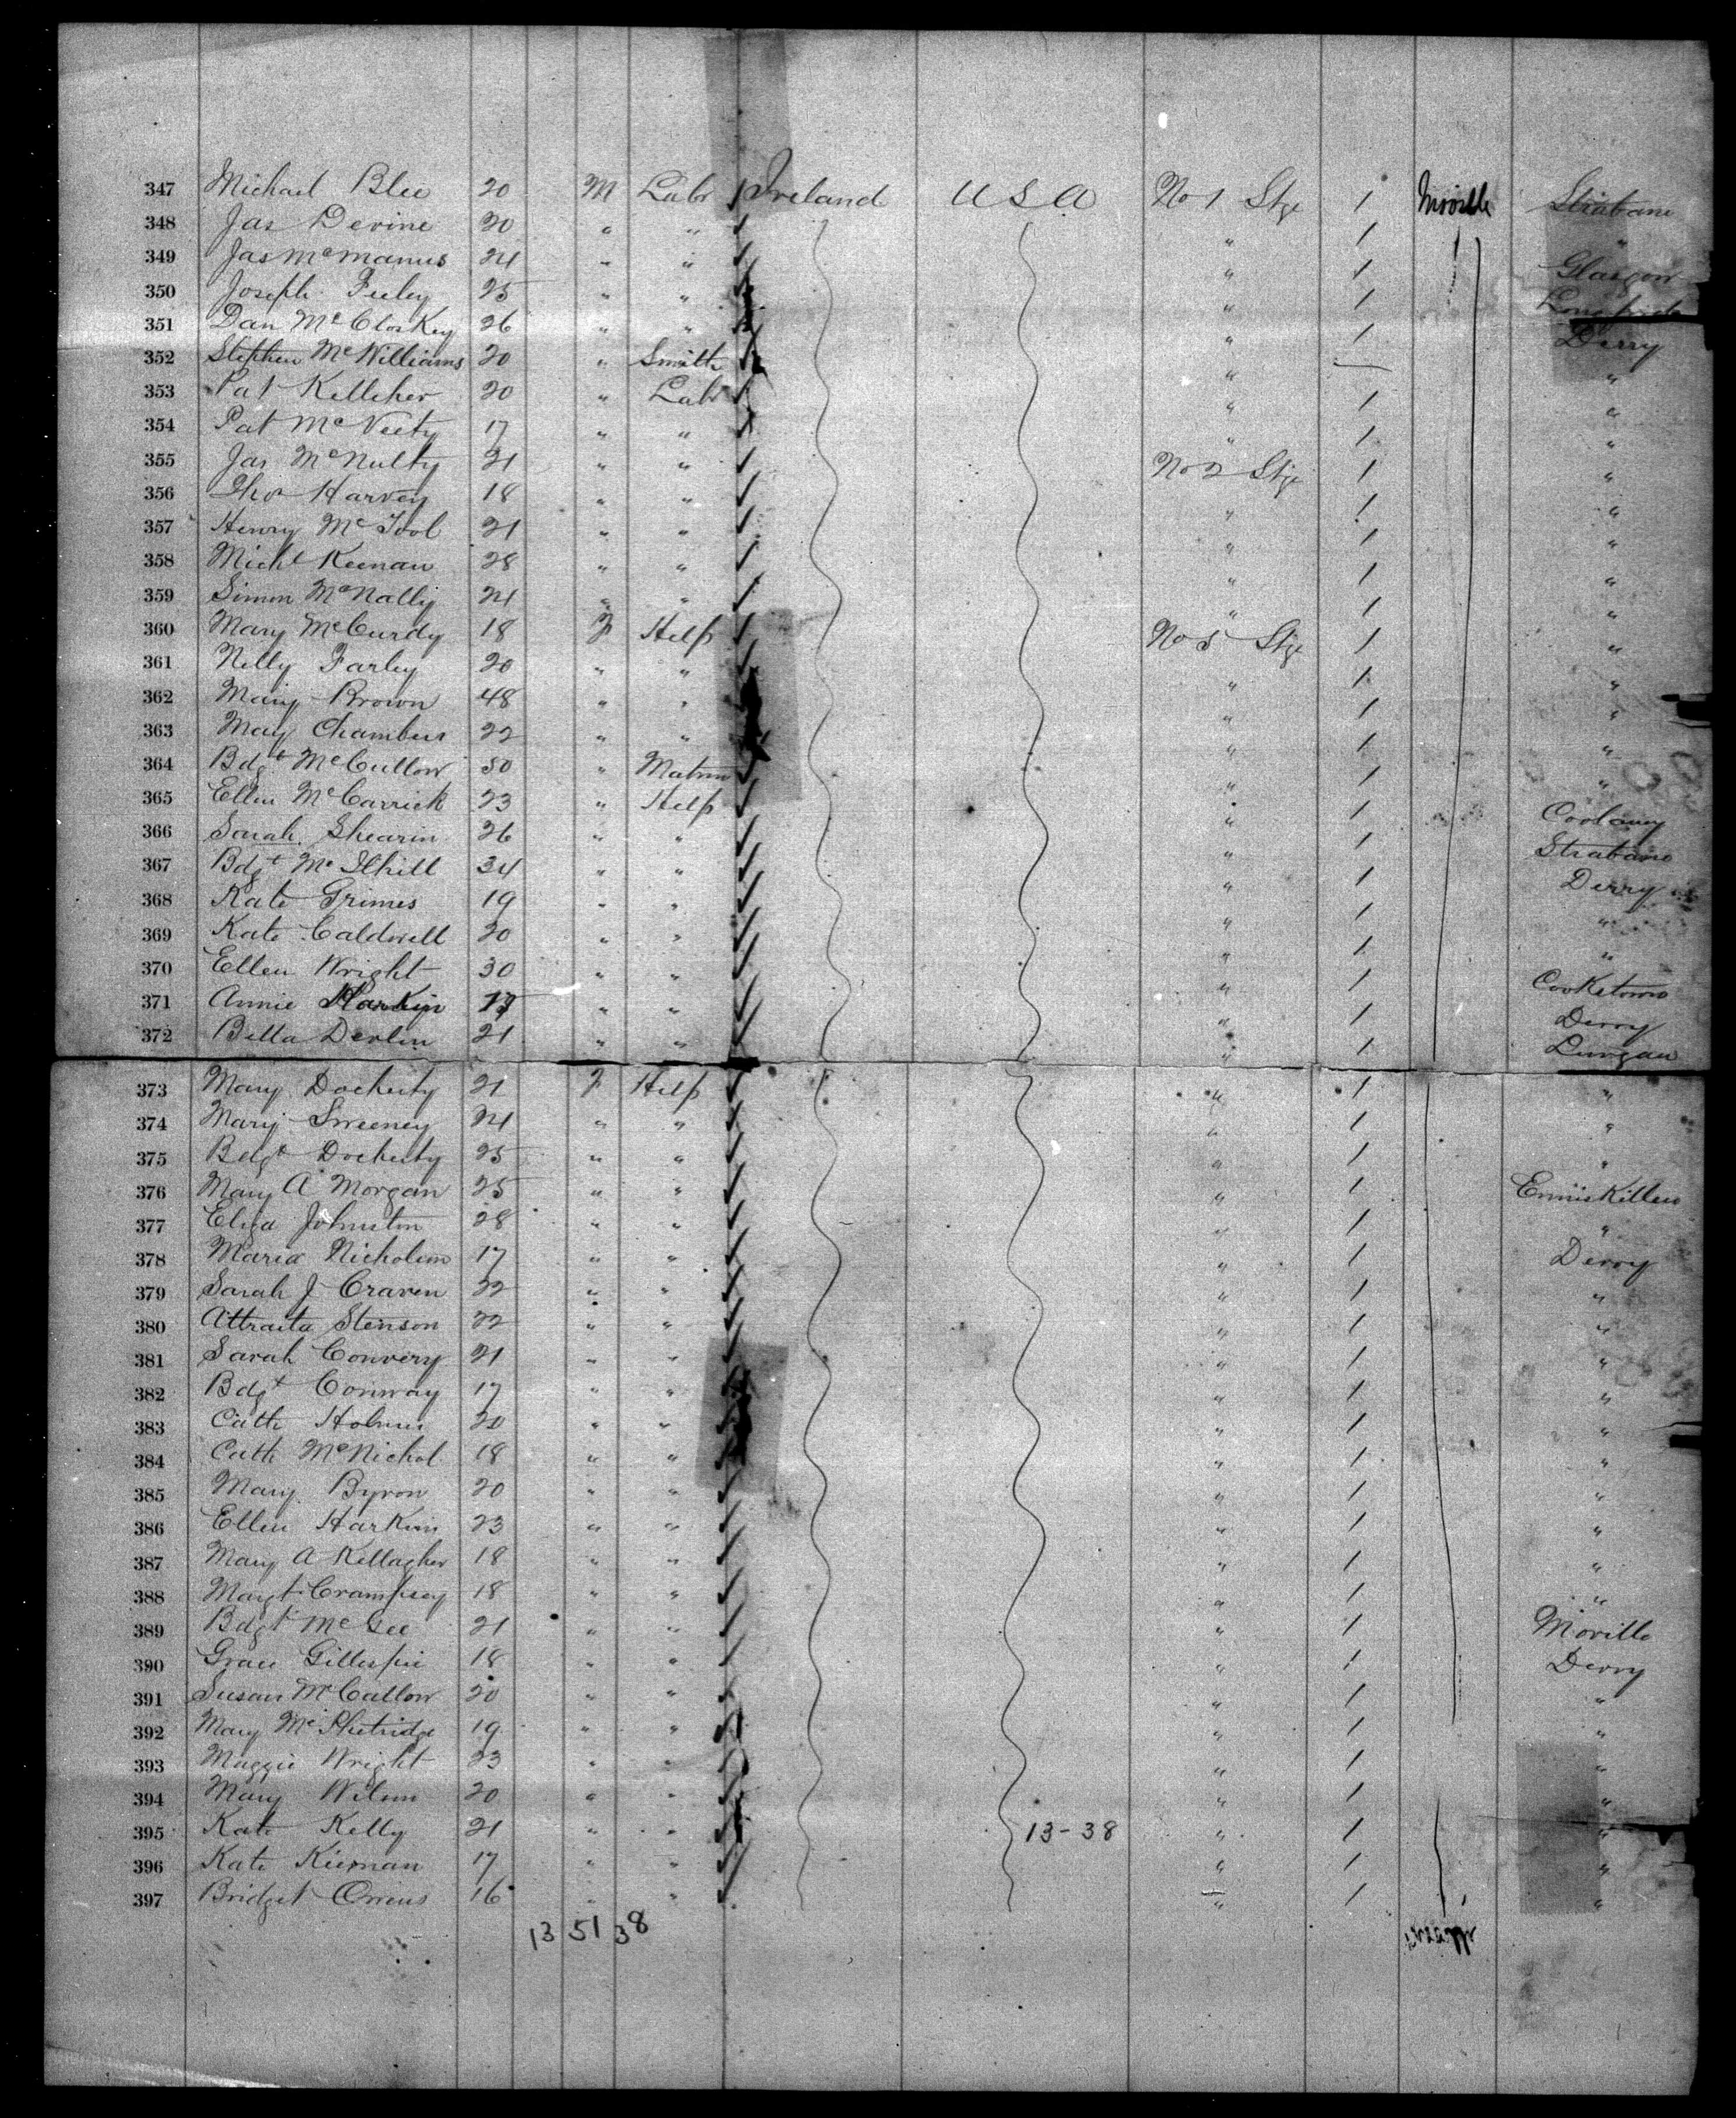 347 Michael Blee 20 M Labr Ireland USA No 1 Stge 1 Moville Strabane
348 Jas Devine 20 " " " 1 "
349 Jas McManus 24 " " " 1 Glasgow
350 Joseph Feeley 25 " " " 1
351 Dan McCloskey 26 " " " 1 Derry
352 Stephen McWilliams 20 " Smith " — "
353 Pat Kelleher 20 " Labr " 1 "
354 Pat McVeety 17 " " " 1 "
355 Jas McNulty 21 " " No 2 Stge 1 "
356 Thos Harvey 18 " " " 1 "
357 Henry McTool 21 " " " 1 "
358 Michl Keenan 28 " " " 1 "
359 Simon McNally 24 " " " 1 "
360 Mary McCurdy 18 F Help No 5 Stge 1 "
361 Nelly Farley 20 " " " 1 "
362 Mary Brown 48 " " " 1 "
363 Mary Chambers 22 " " " 1 "
364 Bdgt McCullow 50 " Matron " 1 "
365 Ellen McCarrick 23 " Help " 1 Coolaney
366 Sarah Shearin 26 " " " 1 Strabane
367 Bdgt McIlhill 34 " " " 1 Derry
368 Kate Grimes 19 " " " 1 "
369 Kate Caldwell 20 " " " 1 "
370 Ellen Wright 30 " " " 1 Cookstown
371 Annie Harkin " " " 1 Derry
372 Bella Devlin 21 " " " 1 Lurgan
373 Mary Docherty 21 F Help " 1 "
374 Mary Sweeney 24 " " " 1 "
375 Bdgt Docherty 25 " " " 1 "
376 Mary A Morgan 25 " " " 1 Enniskillen
377 Eliza Johnston 28 " " " 1 "
378 Maria Nicholson 17 " " " 1 Derry
379 Sarah J Craven 22 " " " 1 "
380 Attracta Stenson 22 " " " 1 "
381 Sarah Convery 21 " " " 1 "
382 Bdgt Conway 17 " " " 1 "
383 Cath Holmes 20 " " " 1 "
384 Cath McNichol 18 " " " 1 "
385 Mary Byron 20 " " " 1 "
386 Ellen Harkins 23 " " " 1 "
387 Mary A Kellagher 18 " " " 1 "
388 Margt Crampsey 18 " " " 1 "
389 Bdgt McGee 21 " " " 1 Moville
390 Grace Gillespie 18 " " " 1 Derry
391 Susan McCallow 20 " " " 1 "
392 Mary McPhetridge 19 " " " 1 "
393 Maggie Wright 23 " " " 1 "
394 Mary Wilson 20 " " " 1 "
395 Kate Kelly 21 " " 13-38 " 1 "
396 Kate Kiernan 17 " " " 1 "
397 Bridget Owens 16 " " " 1 "
13 51 38